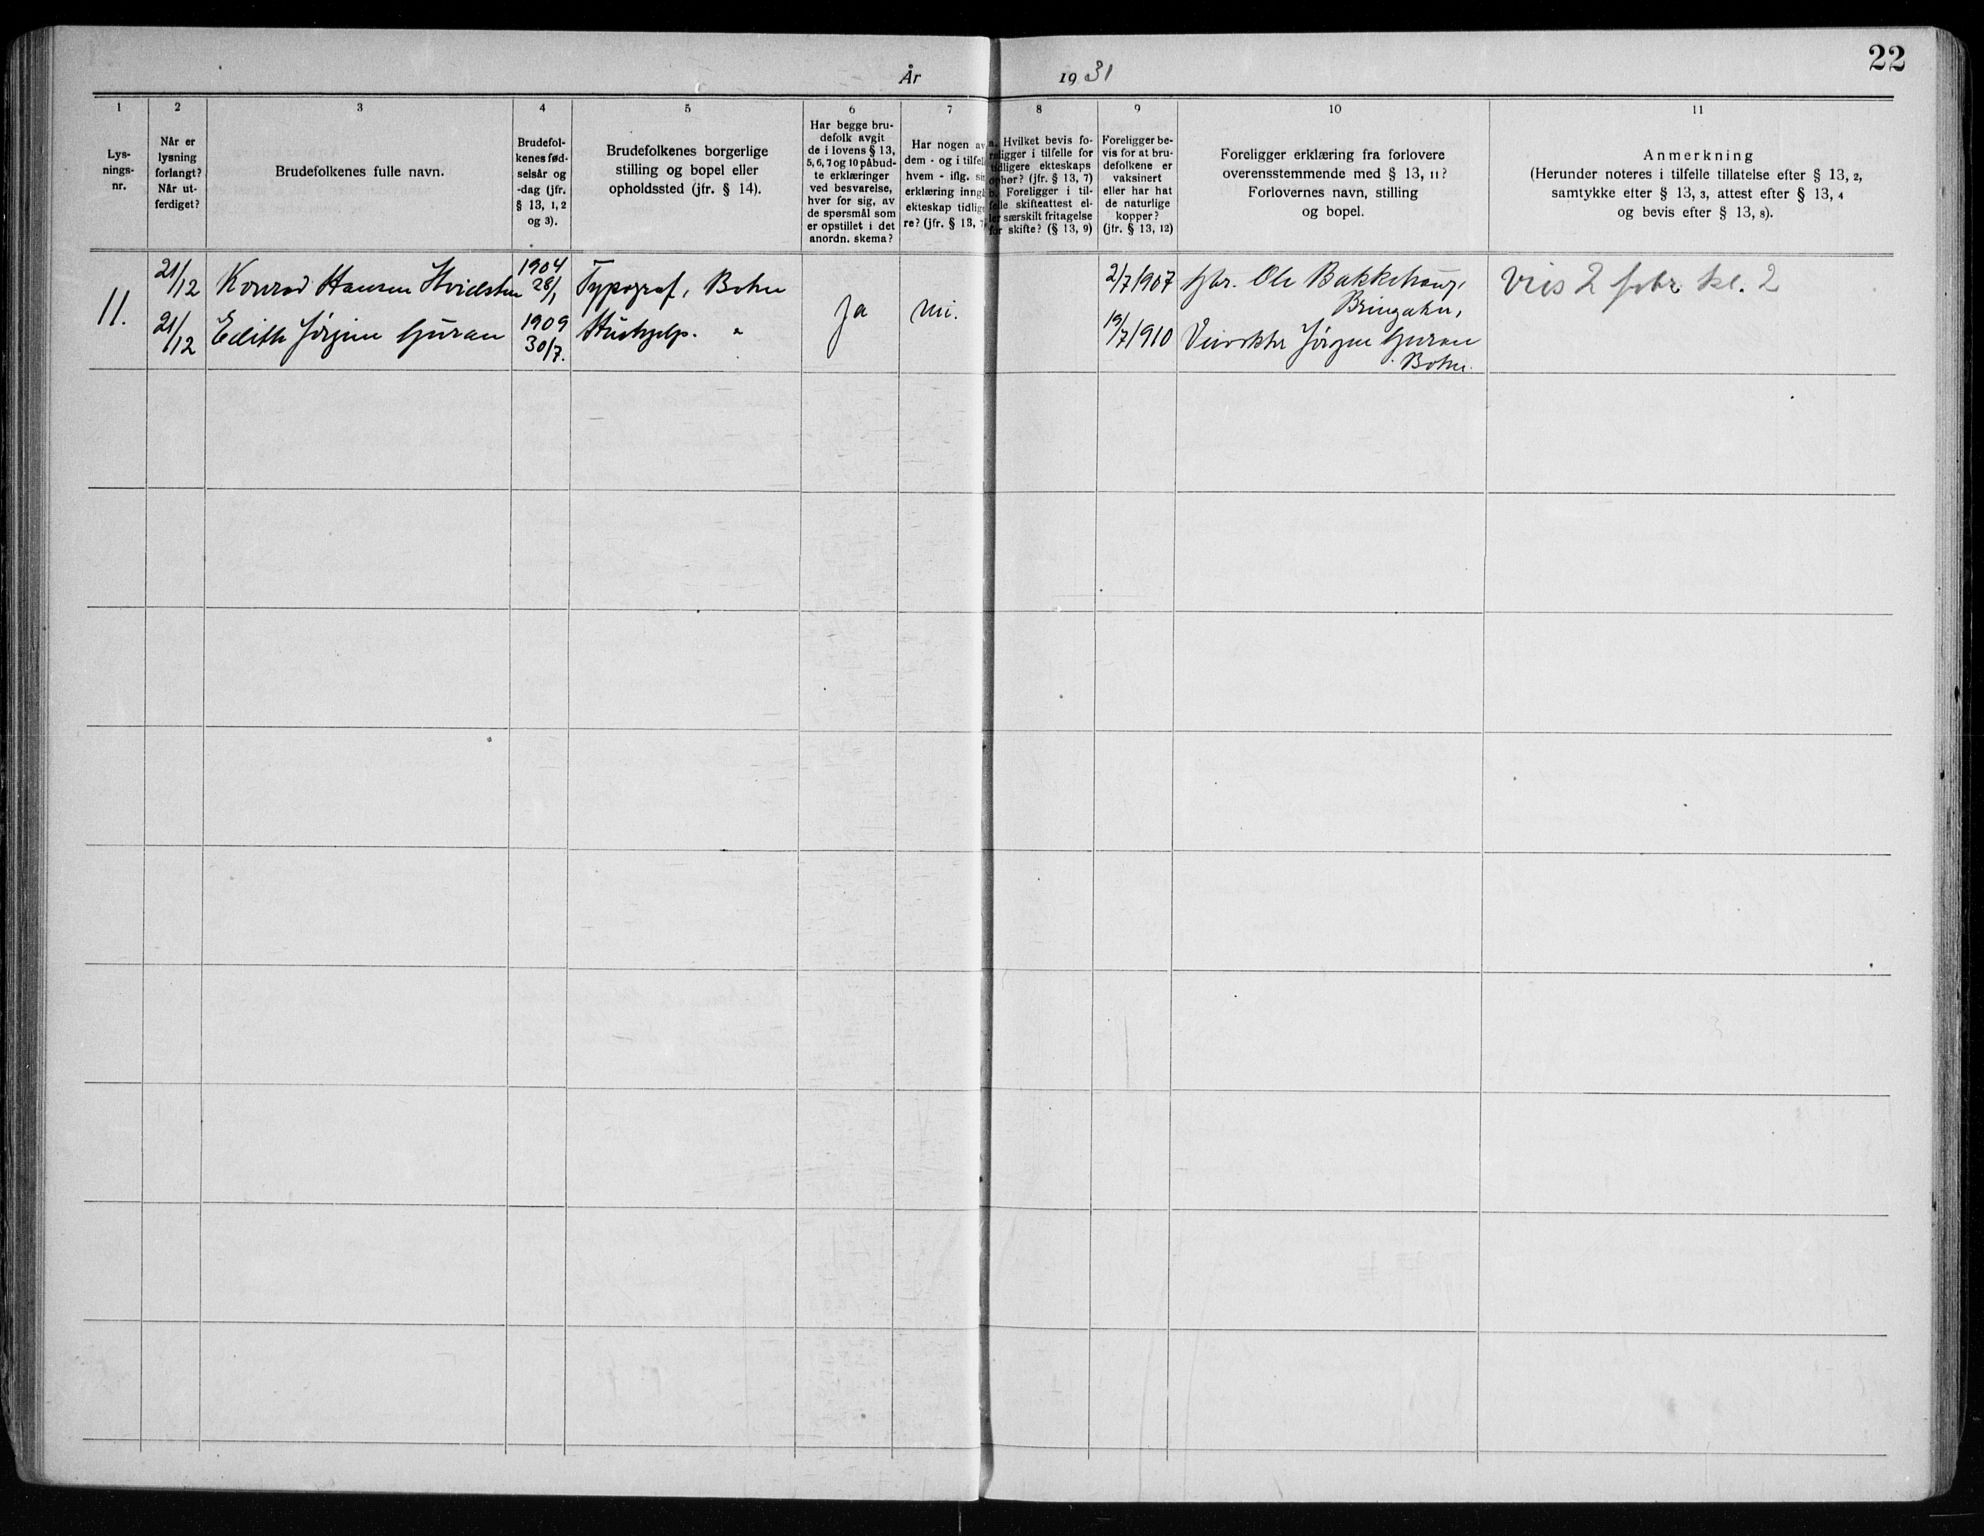 22
År 1931
1
2
3
4
5
6
7
8
9
10
11
Lys-
nings-
nr.
Når er
lysning
forlangt?
Når ut-
ferdiget?
Brudefolkenes fulle navn.
Brudefol-
kenes fød-
selsår og
-dag (jfr.
§ 13, 1, 2
og 3).
Brudefolkenes borgerlige
stilling og bopel eller
opholdssted (jfr. § 14).
Har begge bru-
defolk avgit
de i lovens § 13,
5, 6, 7 og 10 påbud-
te erklæringer
ved besvarelse,
hver for sig, av
de spørsmål som
er opstillet i det
anordn. skema?
Har nogen av
dem - og i tilfel
hvem - iflg. si
erklæring inng
ekteskap tidlig
re? (jfr. § 13, 7
a. Hvilket bevis fo-
religger i tilfelle for
tidligere ekteskaps
ophør? (jfr. § 13, 7)
b. Foreligger i til-
felle skifteattest el-
ler særskilt fritagelse
for skifte? (§ 13, 9)
Foreligger be-
vis for at bru-
defolkene er
vaksinert
eller har hat
de naturlige
kopper?
(jfr. § 13, 12)
Foreligger erklæring fra forlovere
overensstemmende med § 13, 11?
Forlovernes navn, stilling
og bopel.
Anmerkning
(Herunder noteres i tilfelle tillatelse efter § 13, 2,
samtykke efter § 13, 3, attest efter § 13, 4
og bevis efter § 13, 8).
11.
21/12 Konrad Hansen Hvidsten 1904 28/1 Typograf, Botne
21/12 Edith Jørgine Guran 1909 30/7. Hushjelp. "
ja
nei.
2/7 1907 Gbr. Ole Bakkehaug,
Bringaker,
19/7 1910 Jørgen Guran
Botne.
Vies 2 febr. kl. 2